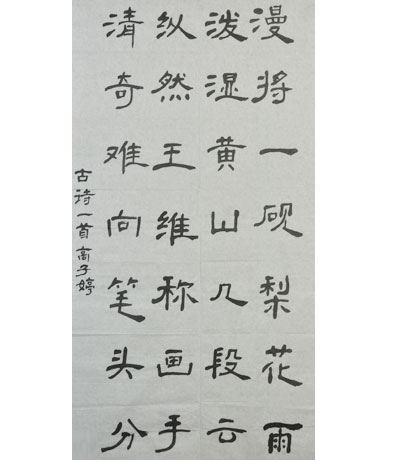 漫将一砚梨花雨
泼湿黄山几段云
纵然王维称画手
清奇难向笔头分
古诗一首高子婷